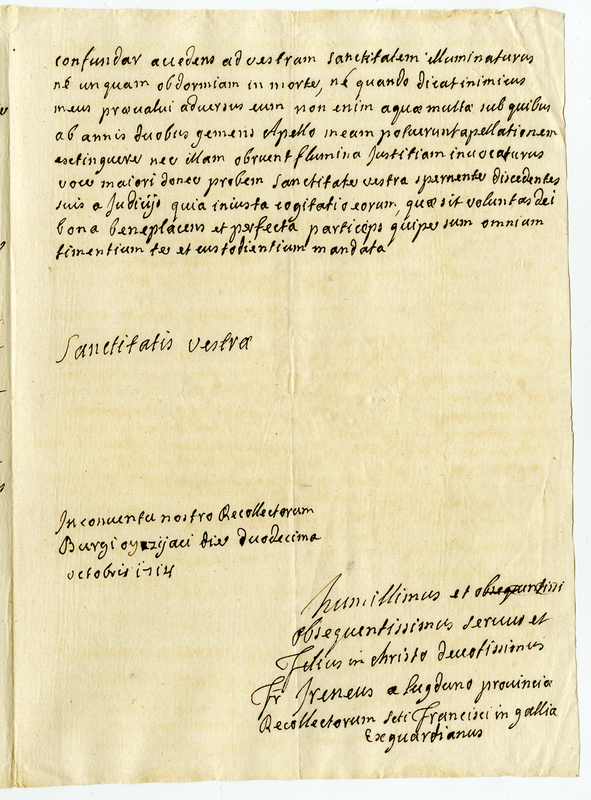 confundar accedens ad vestram sanctitalem illuminaturus
nè unquam obdormiam in morte, nè quando dicat inimicus
meus prævalui adversus eum non enim aquæ multæ sub quibus
ab annis duobus gemens Apello meam poterunt apellationem
extinguere nec illam obruent flumina Justitiam invocaturus
voce maiori donec probem sanctitate vestra spernente discedentes
suis a Judicijs quia iniusta cogitatio eorum, quæ sit voluntas dei
bona beneplacens et perfecta particeps quipe sum omnium
timentium te et custodientium mandata
Sanctitatis vestræ
In conventu nostro Recollectorum
Burgi die duodecima
octobris 1714
humillimus et
obsequentissimus servus et
filius in christo devotissimus
Fr Ireneus a lugduno provincia
Recollectorum scti Francisci in gallia
Exguardianus